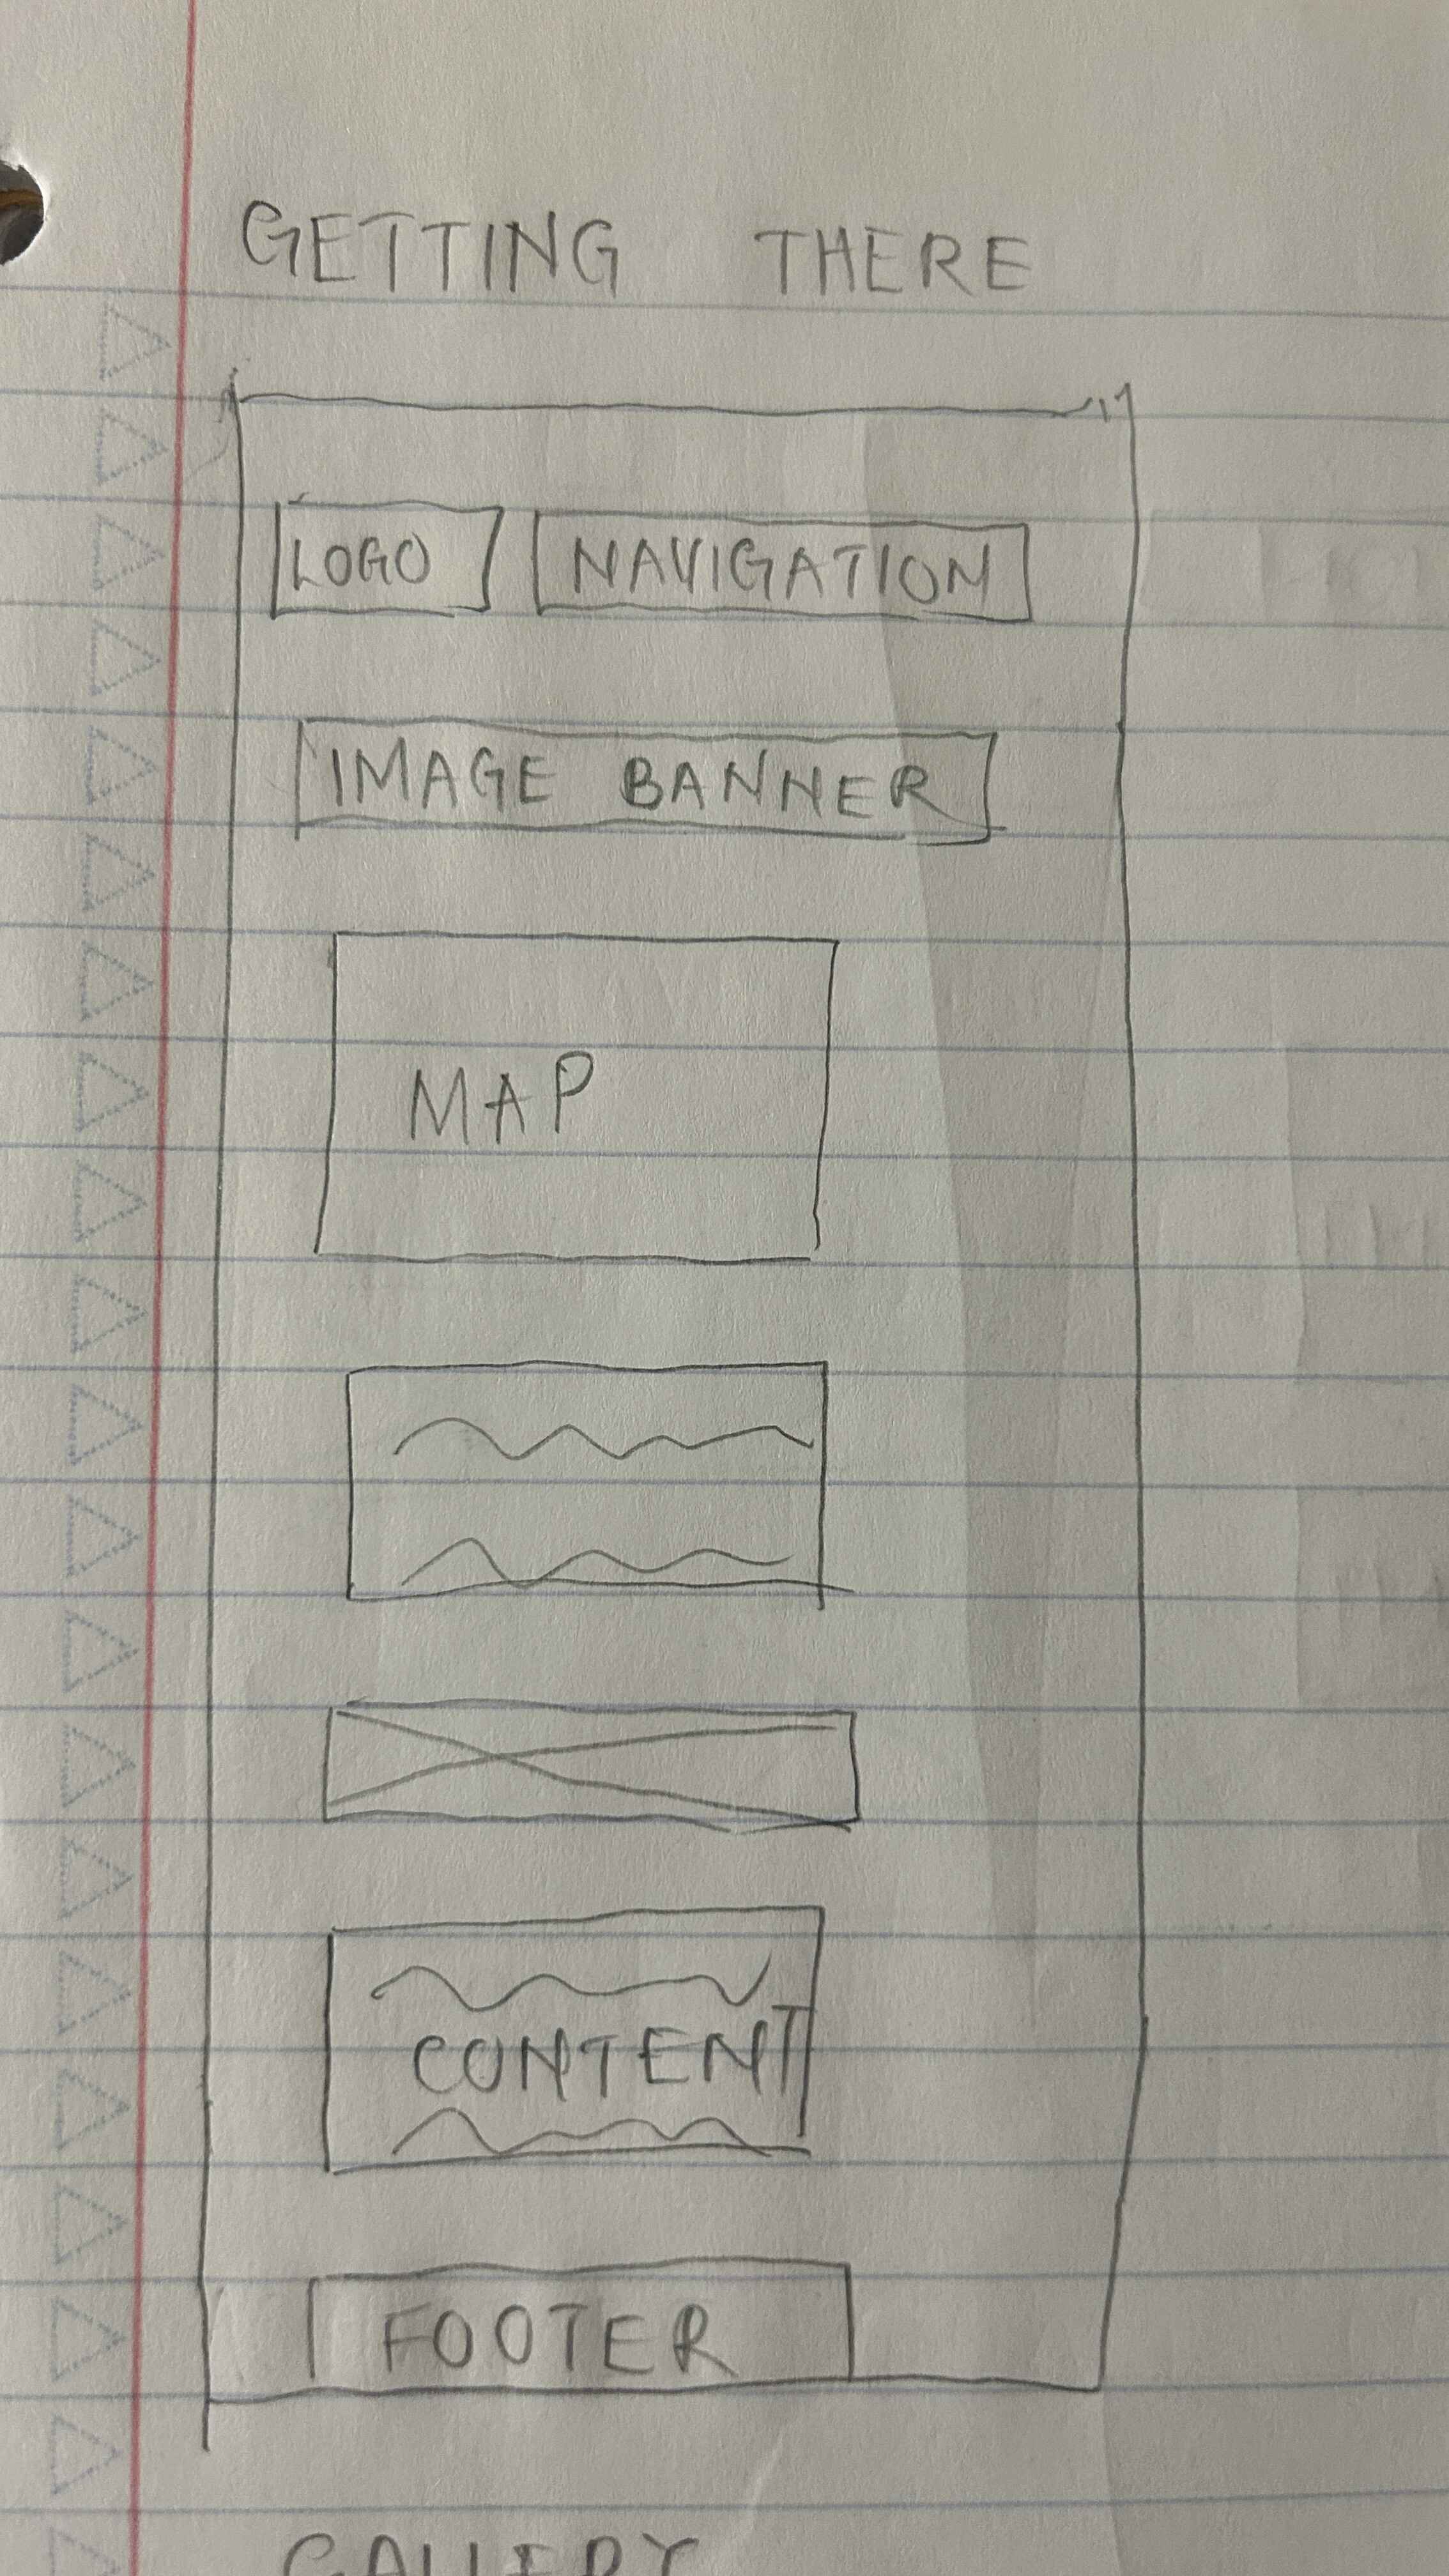 GETTING THERE
LOGO NAVIGATION
IMAGE BANNER
MAP
CONTENT
FOOTER
GALLERY